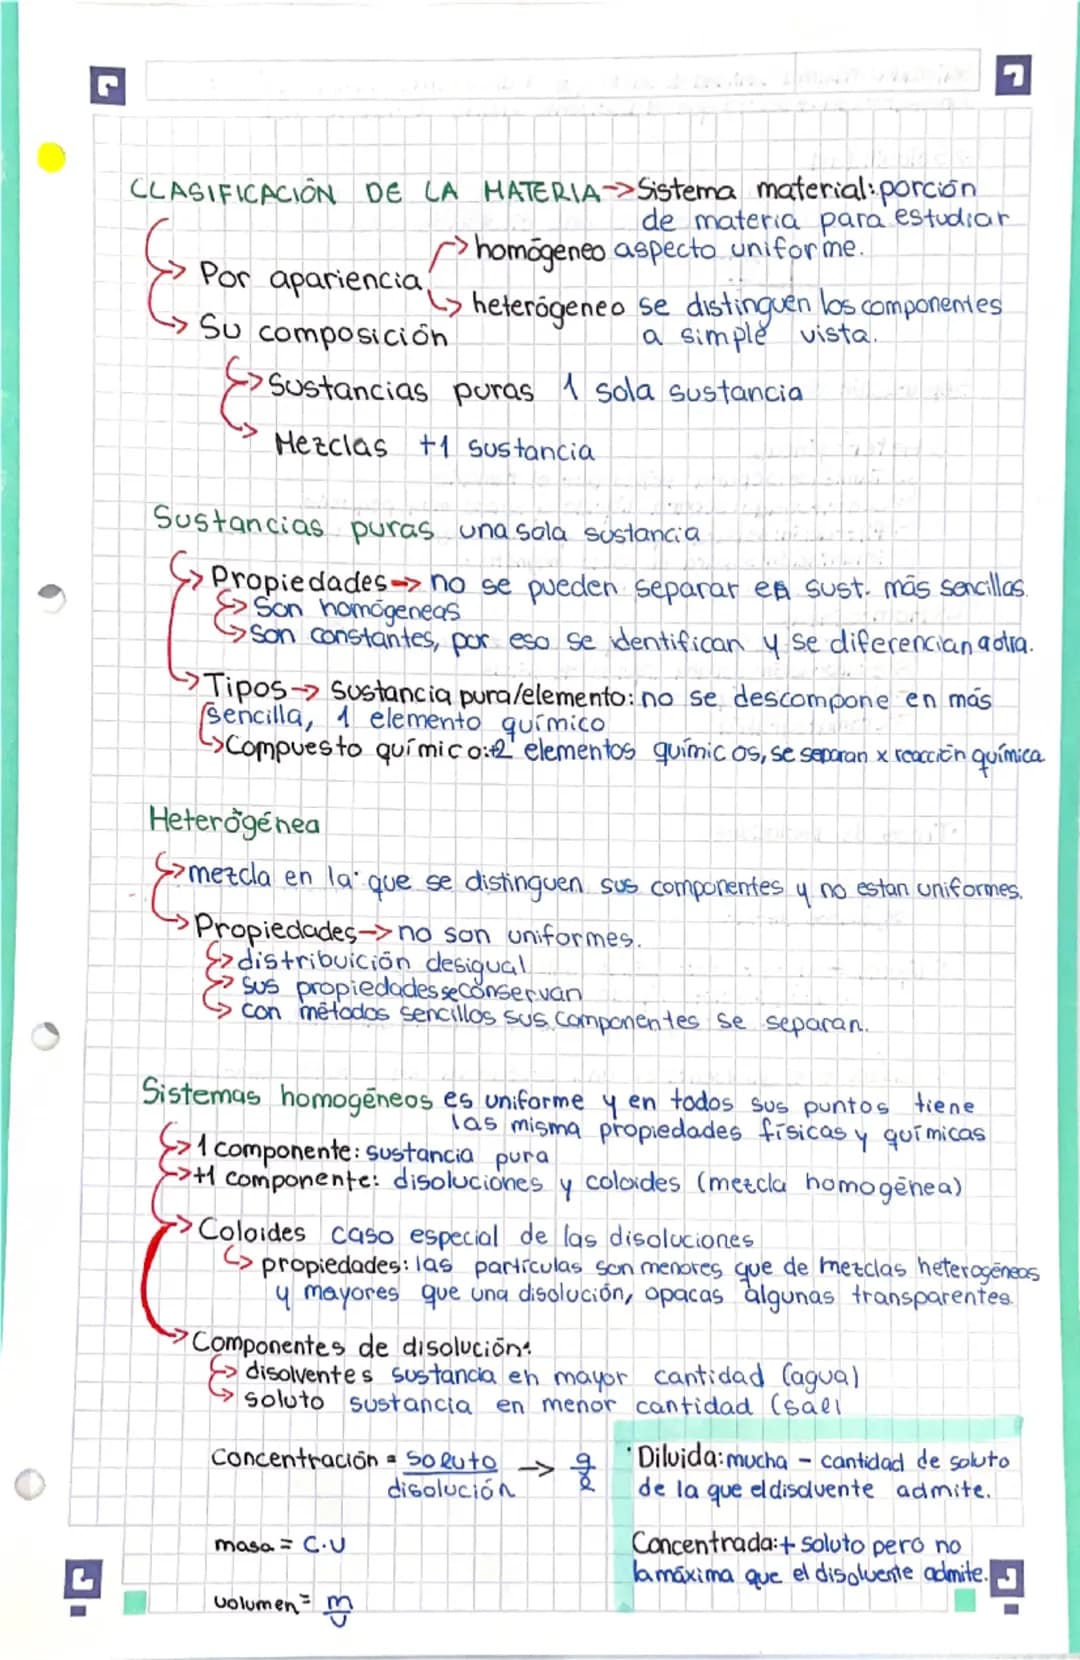 CLASIFICACIÓN DE LA MATERIA→Sistema material: porción
de materia para estudiar
Por apariencia → homógeneo aspecto uniforme.
→ heterógeneo se distinguen los componentes
a simple vista.
→ Su composición
→ Sustancias puras 1 sola sustancia
→ Mezclas +1 sustancia
Sustancias puras una sola sustancia
→ Propiedades → no se pueden separar en sust. más sencillas.
→ Son homógeneas
→ son constantes, por eso se identifican y se diferencian a otra.
→ Tipos → sustancia pura/elemento: no se descompone en más
sencilla, 1 elemento químico
→ Compuesto químico: +2 elementos químicos, se separan x reacción química
Heterógénea
→ mezcla en la que se distinguen sus componentes y no estan uniformes.
→ Propiedades → no son uniformes.
→ distribuición desigual
→ sus propiedades se conservan
→ con métodos sencillos sus componentes se separan.
Sistemas homogéneos es uniforme y en todos sus puntos tiene
las misma propiedades físicas y químicas
→ 1 componente: sustancia pura
→ +1 componente: disoluciones y coloides (mezcla homogénea)
→ Coloides caso especial de las disoluciones
→ propiedades: las partículas son menores que de mezclas heterogéneas
y mayores que una disolución, opacas algunas transparentes.
→ Componentes de disolución:
→ disolventes sustancia en mayor cantidad (agua)
→ soluto sustancia en menor cantidad (sal)
Concentración = soluto/disolución → g/l
· Diluida: mucha - cantidad de soluto
de la que el disolvente admite.
masa = C·V
Concentrada: + soluto pero no
la máxima que el disolvente admite.
volumen = m/